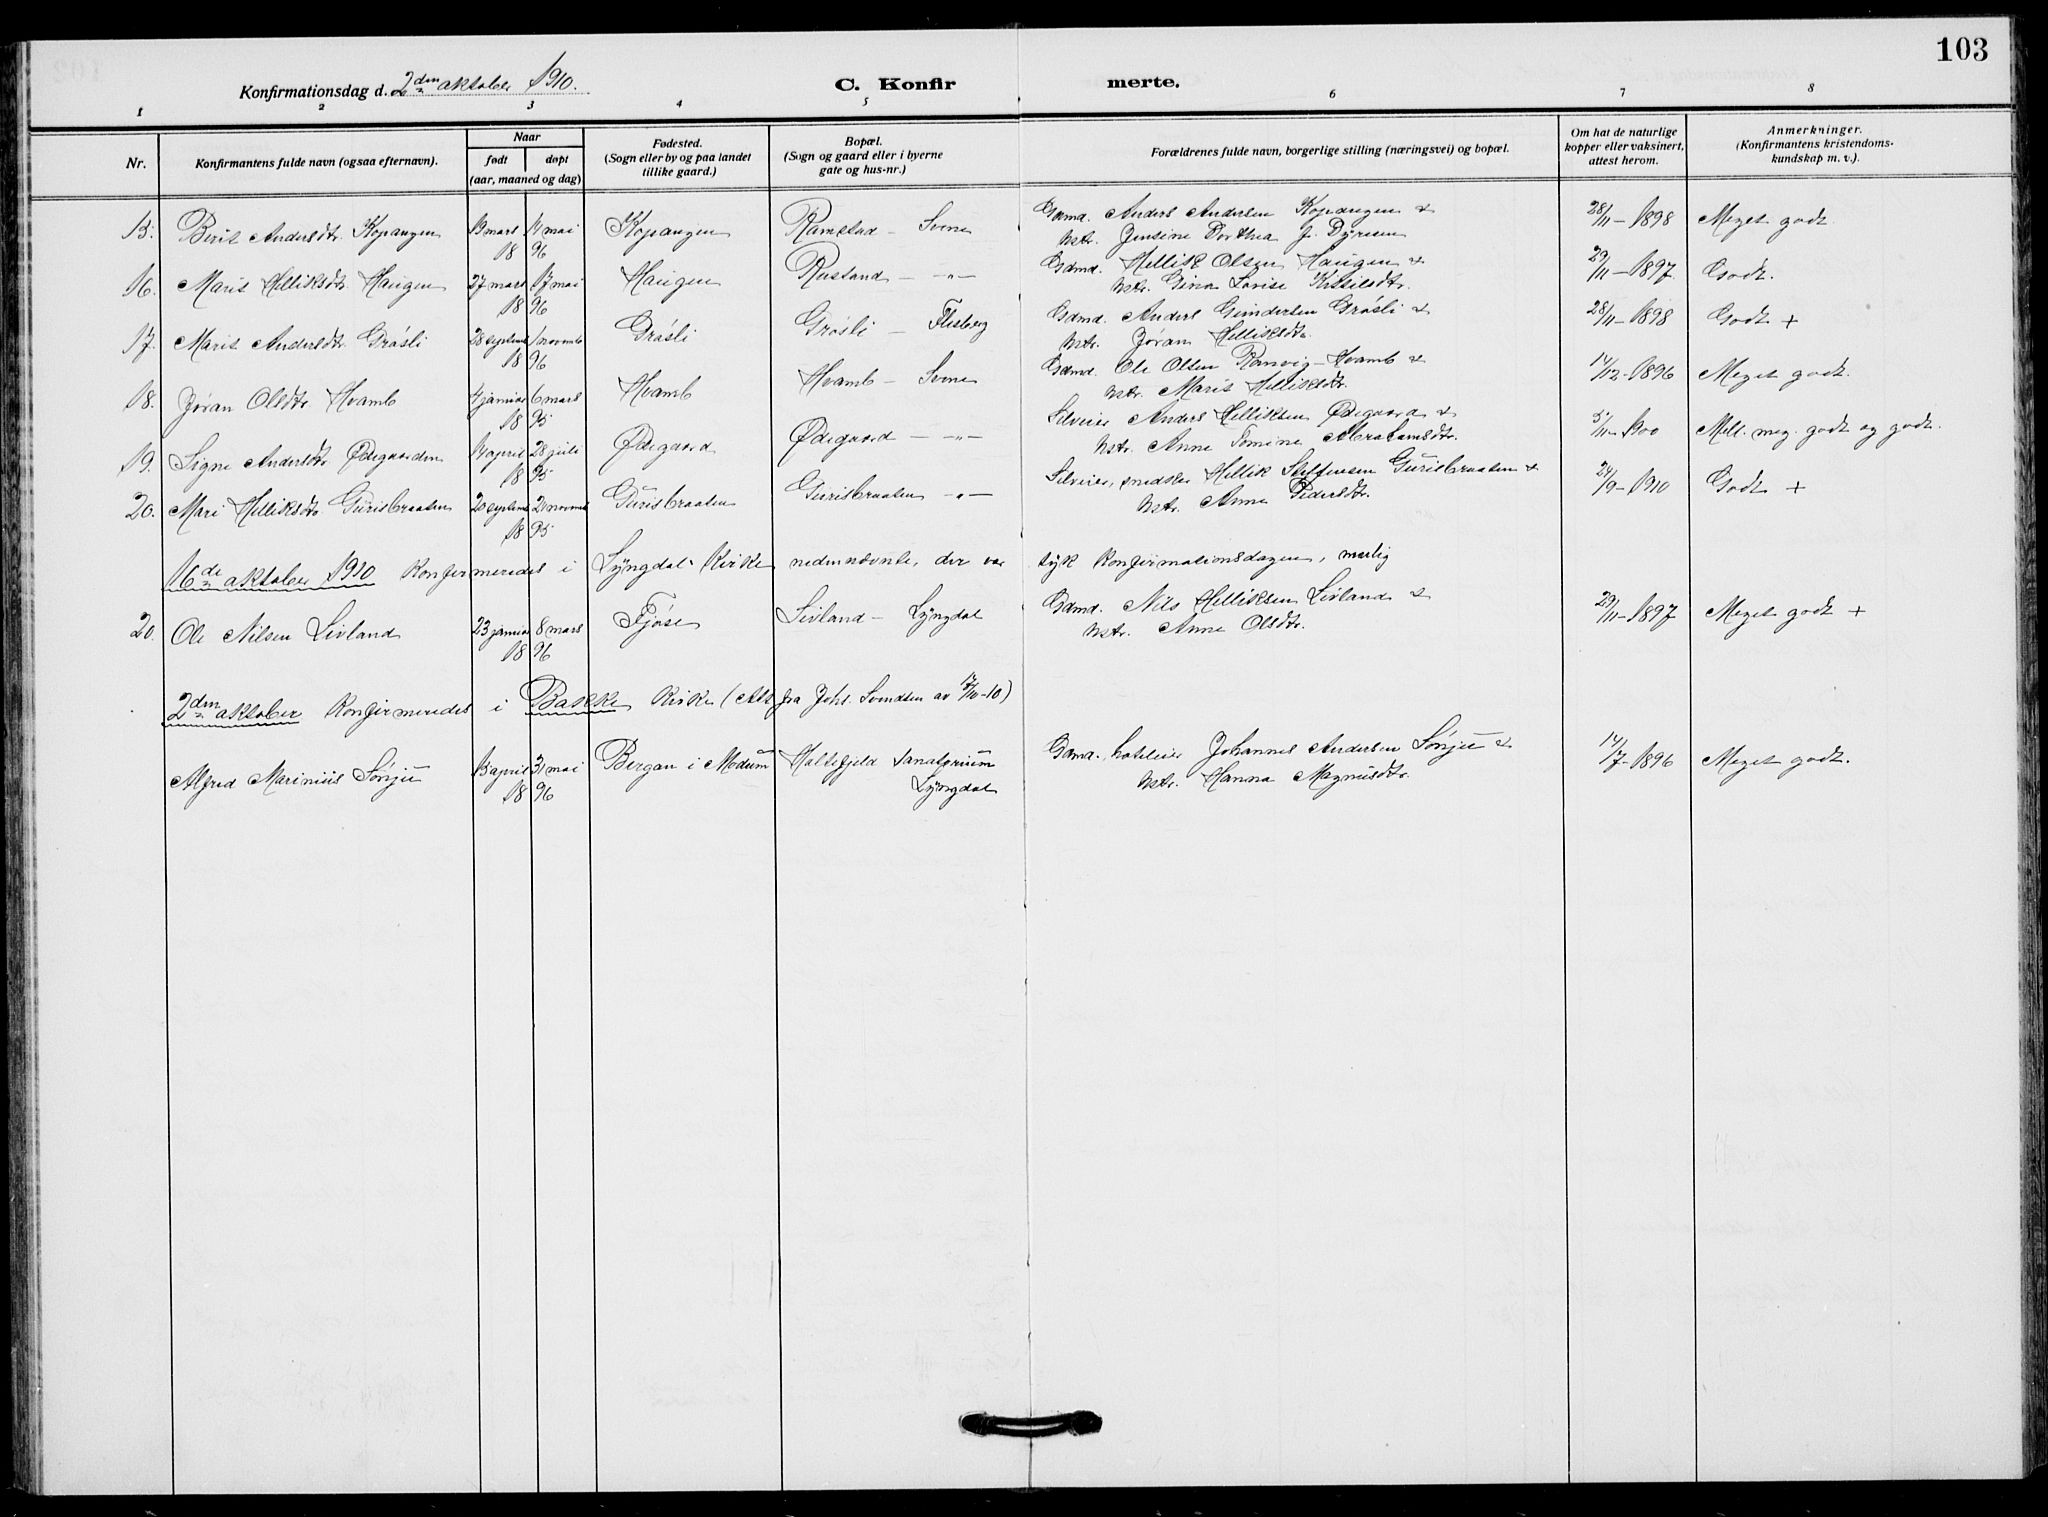 103
Konfirmationsdag d. 2den oktober 1910.
C. Konfir merte.
1 2 3 4 5 6 7 8
Nr.
Konfirmantens fulde navn (ogsaa efternavn).
Naar
født døpt
(aar, maaned og dag)
Fødested.
(Sogn eller by og paa landet
tillike gaard.)
Bopæl.
(Sogn og gaard eller i byerne
gate og hus-nr.)
Forældrenes fulde navn, borgerlige stilling (næringsvei) og bopæl.
Om hat de naturlige
kopper eller vaksinert,
attest herom.
Anmerkninger.
(Konfirmantens kristendoms-
kundskap m. v.).
15. Berit Andersdtr. Kopangen 19 mars 14 mai Kopangen Ramstad – Svene Gdmd. Anders Andersen Kopangen & 28/11–1898 Meget godt
18 96 hstr. Jensine Dorthea J. Dyresen
16. Marit Helliksdtr. Haugen 27 mars 17 mai Haugen Rustand – –"– Gdmd. Hellik Olsen Haugen & 29/11–1897 Godt.
18 96 hstr. Gina Lovise Kittilsdtr.
17. Marit Andersdtr. Gråsli 28 septemb 1 novemb Gråsli Gråsli – Flesberg Gdmd. Anders Gundersen Gråsli & 28/11–1898 Godt +
18 96 hstr. Jøran Helliksdtr.
18. Jøran Olsdtr. Hvamb 4 januar 6 mars Hvamb Hvamb – Svene Gdmd. Ole Olsen Ranvig–Hvamb & 17/12–1896 Meget godt.
18 95 hstr. Marit Helliksdtr.
19. Signe Andersdtr. Ødegaarden 14 april 28 juli Ødegaard Ødegaard – –"– Selveier Anders Helliksen Ødegaard & 5/11–1900 Mell. meg. godt og godt.
18 95 hstr. Anne Tomine Abrahamsdtr.
20. Mari Helliksdtr. Gurisbraaten 20 septemb 21 novemb Gurisbraaten Gurisbraaten –"– Selveier, snedker Hellik Steffensen Gurisbraaten & 24/9–1910 Godt +
18 95 hstr. Anne Pedersdtr.
16de oktober 1910 konfirmeredes i Lyngdal Kirke nedennævnte, der var syk konfirmationsdagen, nemlig
20. Ole Nilsen Livland 23 januar 8 mars Fjøse Livland – Lyngdal Gdmd. Nils Helliksen Livland & 29/11–1897 Meget godt +
18 96 hstr. Anne Olsdtr.
2den oktober konfirmeredes i Bakke Kirke (Att. fra Johs. Svendsen av 17/10–10)
Alfred Marinius Sønju 13 april 31 mai Bergan i Modum Holtefjeld Sanatorium Gdmd., hoteleier Johannes Andersen Sønju & 14/7–1896 Meget godt.
18 96 Lyngdal hstr. Hanna Magnusdtr.